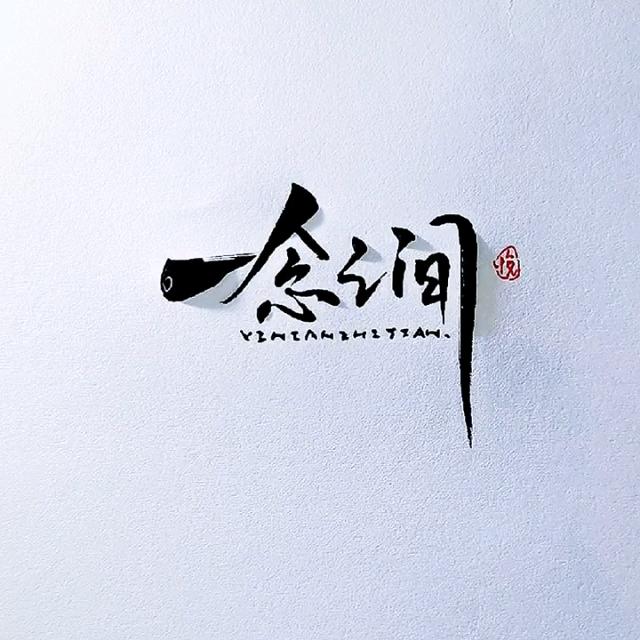 一念之间
YINIANZHIJIAN.
悦